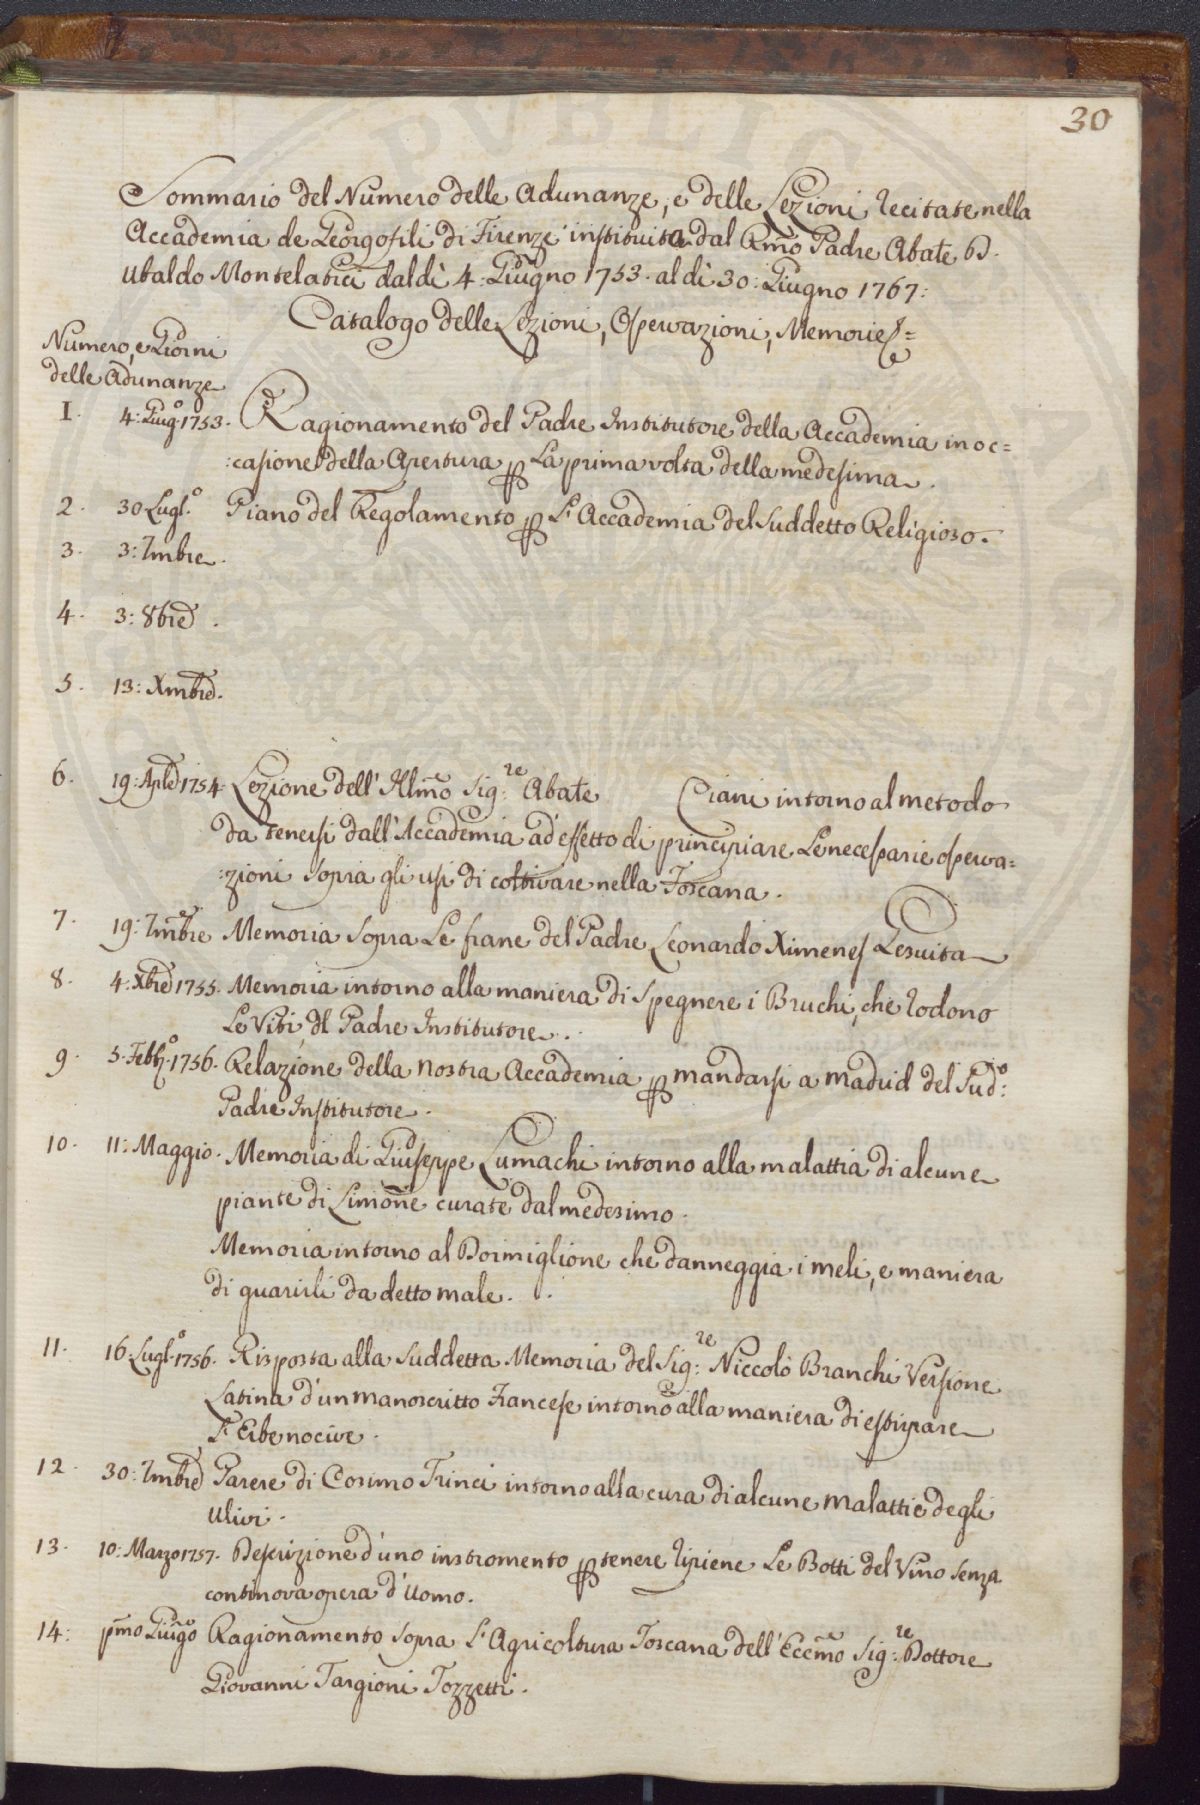 30
Sommario del Numero delle Adunanze, e delle Lezioni recitate nella
Accademia de Georgofili di Firenze instituita dal Rmo Padre Abate D.
Ubaldo Montelatici dal dì 4: Giugno 1753. al dì 30: Giugno 1767:
Catalogo delle Lezioni, Osservazioni, Memorie &c=
Numero, e Giorni
delle Adunanze
1. 4: Giugo 1753. Ragionamento del Padre Institutore della Accademia in oc=
:casione della Apertura p La prima volta della medesima.
2. 30 Luglo. Piano del Regolamento p L'Accademia del Suddetto Religioso.
3. 3: 7mbre.
4. 3: 8bre.
5. 13: Xmbre.
6. 19: Aple 1754. Lezione dell' Illmo Sig:re Abate Ciani intorno al metodo
da tenersi dall'Accademia ad effetto di principiare Le necessarie osserva=
:zioni sopra gli usi di coltivare nella Toscana.
7. 19: 7mbre Memoria sopra Le frane del Padre Leonardo Ximenes Gesuita
8. 4: Xbre 1755. Memoria intorno alla maniera di Spegnere i Bruchi, che rodono
Le Viti dl Padre Institutore.
9. 5. Febbo. 1756. Relazione della nostra Accademia p mandarsi a Madrid del Sudo:
Padre Institutore.
10. 11: Maggio. Memoria di Giuseppe Lumachi intorno alla malattia di alcune
piante di Limone curate dal medesimo.
Memoria intorno al Dormiglione che danneggia i meli, e maniera
di guarirli da detto male.
11. 16. Luglo. 1756. Risposta alla Suddetta Memoria del Sig:re Niccolò Branchi Versione
Latina d'un manoscritto Francese intorno alla maniera di estirpare
L'Erbe nocive.
12. 30: 7mbre Parere di Cosimo Trinci intorno alla cura di alcune malattie degli
Ulivi.
13. 10: Marzo 1757. Descrizione d'uno instromento p tenere ripiene Le Botti del Vino senza
continova opera d'Uomo.
14: pmo Giugo Ragionamento sopra L'Agricoltura Toscana dell' Eccmo Sig:re Dottore
Giovanni Targioni Tozzetti.